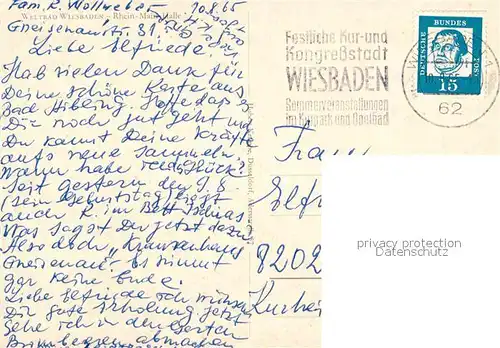 Fam. R. Wollweber 10.8.65
WELTBAD WIESBADEN – Rhein-Main-Halle
Gneisenaustr. 31
Liebe Elfriede
Hab vielen Dank für
Deine schöne Karte aus
Bad Aibling. Hoffe daß es
Dir noch gut geht und
Du kannst Deine Kräfte
aufs neue sammeln.
Wann habe ich Glück?
Seit gestern den 9.8.
(sein Geburtstag) liegt
auch R. im Bett Ischias
Was sagst Du jetzt dazu?
Also doch "Krankenhaus
Gneisenau". Es nimmt
gar keine Ende.
Liebe Elfriede ich wünsche
Dir gute Erholung jetzt
gehe ich in den Garten
abmachen
Festliche Kur- und
Kongreßstadt
WIESBADEN
Sommerveranstaltungen
im Kurpark und Opelbad
62
DEUTSCHE BUNDESPOST
15
Frau
Elfr
8202
Kurhei
privacy protection
Datenschutz